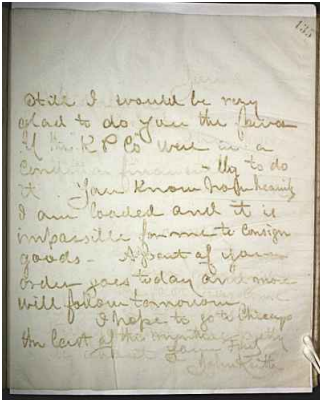 135
Still I would be very
glad to do you the favor
if the K P Co were in a
condition financially to do
it You know how heavily
I am loaded and it is
impossible for me to consign
goods - A part of your
order goes today and more
will follow tomorrow
I hope to go to Chicago
the last of this